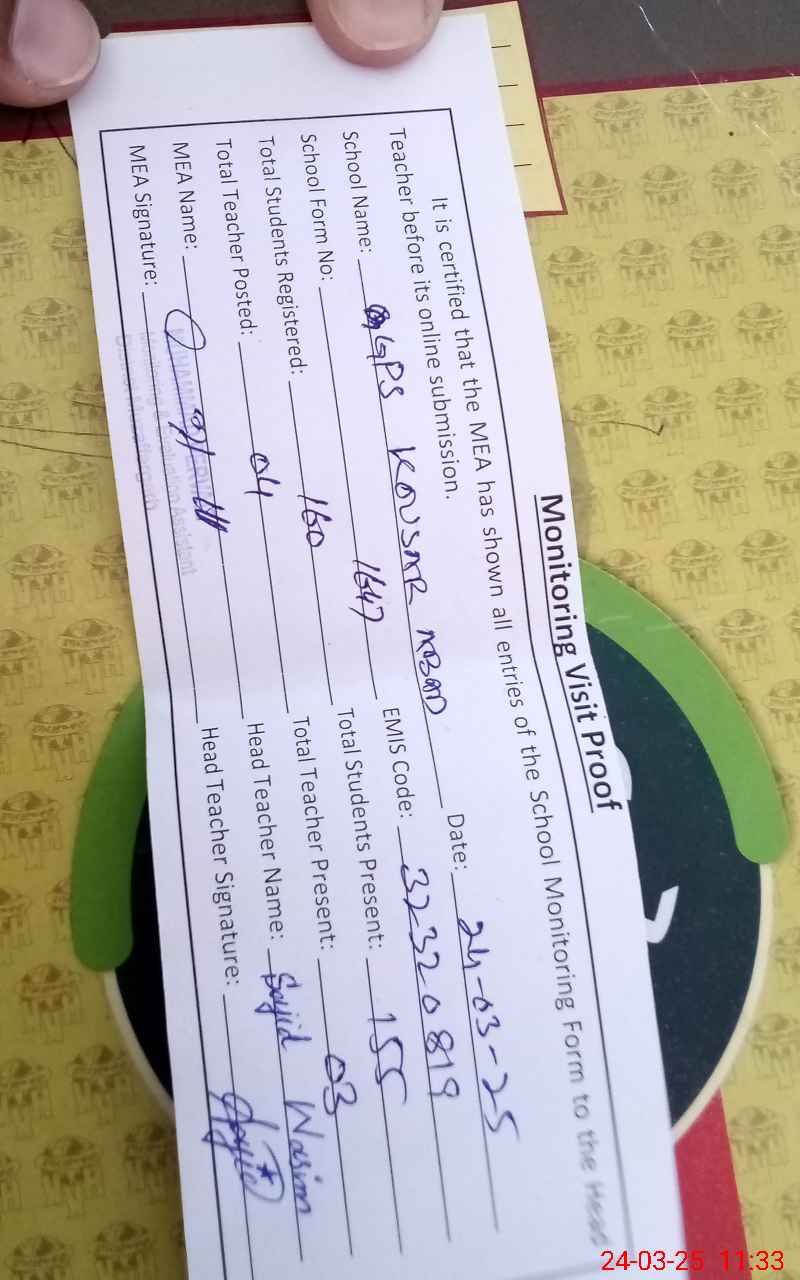 Monitoring Visit Proof
It is certified that the MEA has shown all entries of the School Monitoring Form to the Head
Teacher before its online submission.
Date: 24-03-25
School Name: GPS KOUSAR ABAD
EMIS Code: 37320819
School Form No: 1647
Total Students Present: 155
Total Students Registered: 160
Total Teacher Present: 03
Total Teacher Posted: 04
Head Teacher Name: Sajid Wasim
MEA Name:
Head Teacher Signature:
MEA Signature:
Monitoring & Evaluation Assistant
24-03-25 11:33